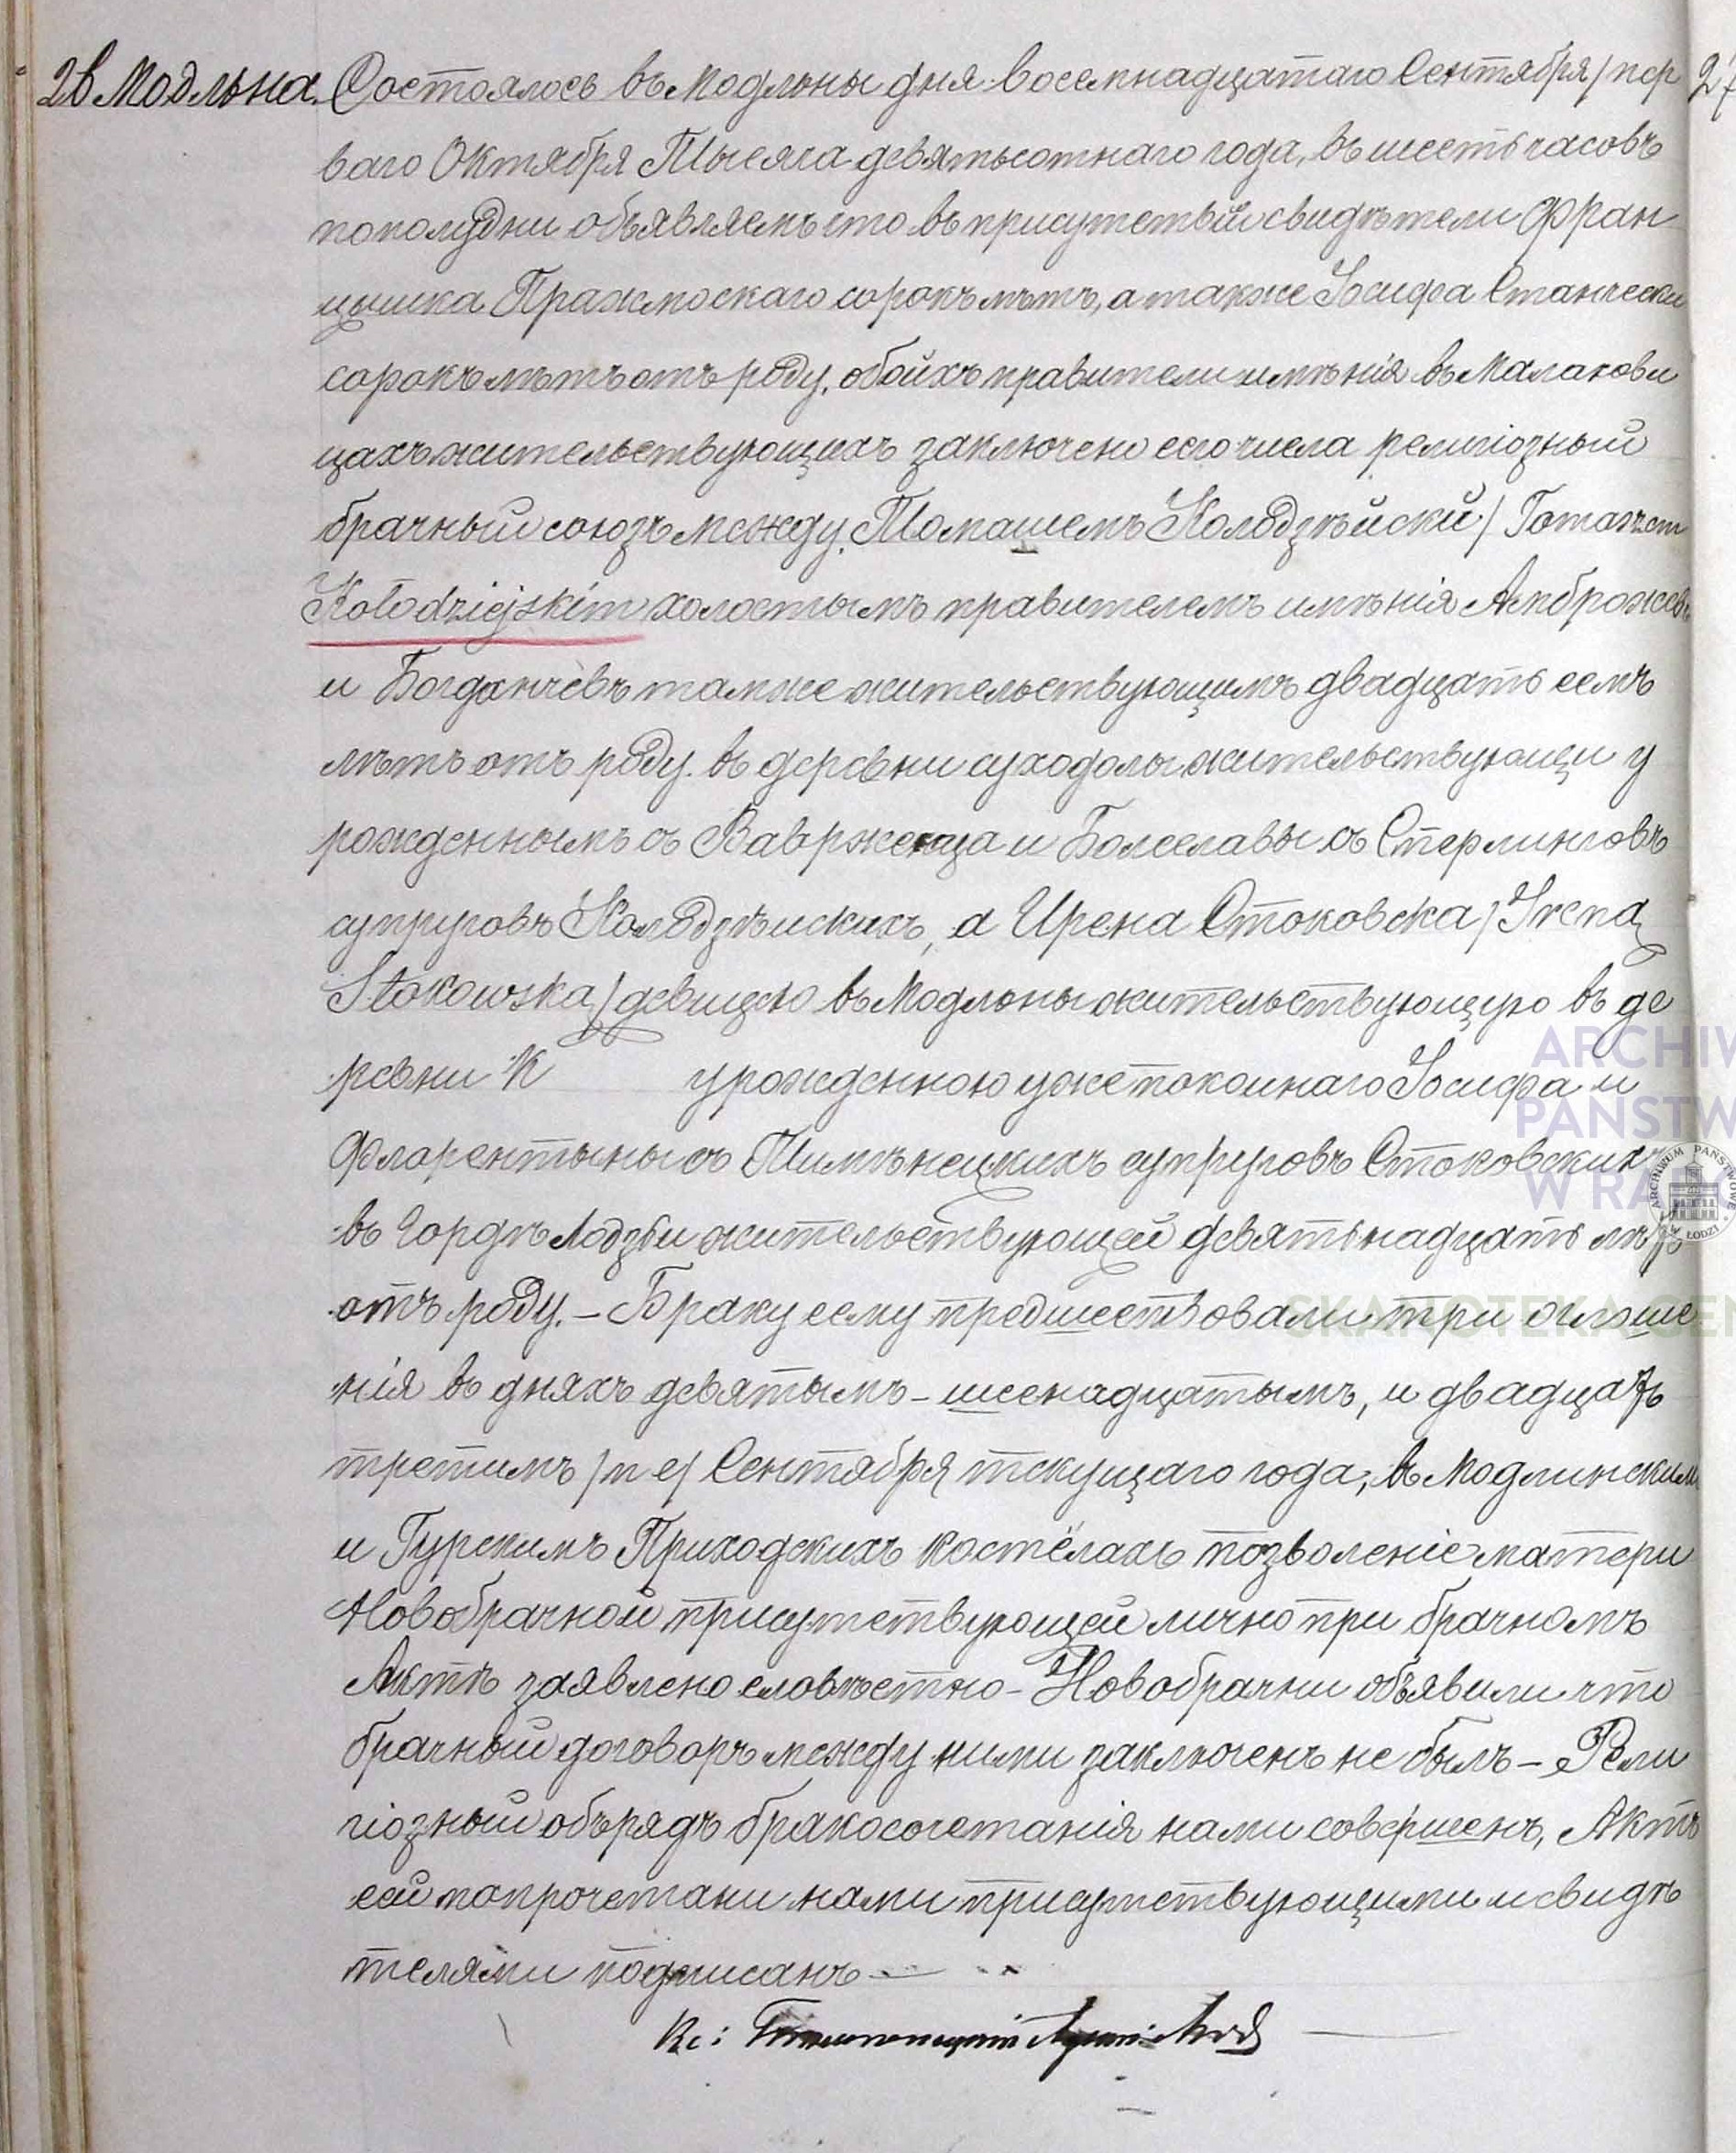 28 Модльна. Состоялось въ Модльны дня восемнадцатаго Сентября / пер 27
ваго Октября Тысяга девятьсотнаго года, въ шесть часовъ
пополудни объявляемъ что въ присутствіи свидѣтели Фран
цишка Пражмоскаго сорокъ лѣтъ, а также Іосифа
сорокъ лѣтъ отъ роду, обоихъ правители имѣнія въ Малахови
цахъ жительствующихъ заключено сего числа религіозный
брачный союзъ между Томашемъ Колодзѣйский / Tomaszem
Kołodziejskim холостымъ правителемъ имѣнія Амброжев
и Богданчевъ тамже жительствующимъ двадцать семъ
лѣтъ отъ роду. въ деревни суходолы жительствующи у
рожденнымъ съ Вавржеңца и Болеславы съ Стерлинговъ
супруговъ Колодзѣискихъ, а Ирена Стоковска / Ireną
Stokowską / девицею въ Модльны жительствующую въ де
ревни К урожденною уже покоинаго Іосифа и
Флорентыны съ Пимѣнецкихъ супруговъ Стоковскихъ
въ Гордѣ Лодзи жительствующей девятьнадцать лѣтъ
отъ роду. – Браку сему предшествовали три оглоше
нія въ дняхъ девятымъ – шеснадцатымъ, и двадцать
третимъ / н с / Сентября текущаго года, въ Модлинскимъ
и Гурскимъ Приходскихъ костёлахъ позволеніе матери
Новобрачной присутствующей лично при брачномъ
Актѣ заявлено словѣстно – Новобрачни объявили что
брачный договоръ между ними заключенъ не былъ – Рели
гіозный обърядъ бракосочетанія нами совершенъ, Актъ
сей попрочетани нами присутствующими и свидѣ
телями подписанъ –
Кс:
ARCHIW
PAŃSTW
W RA
SKANOTEKA GEN
ARCHIWUM PAŃSTWOWE W ŁODZI